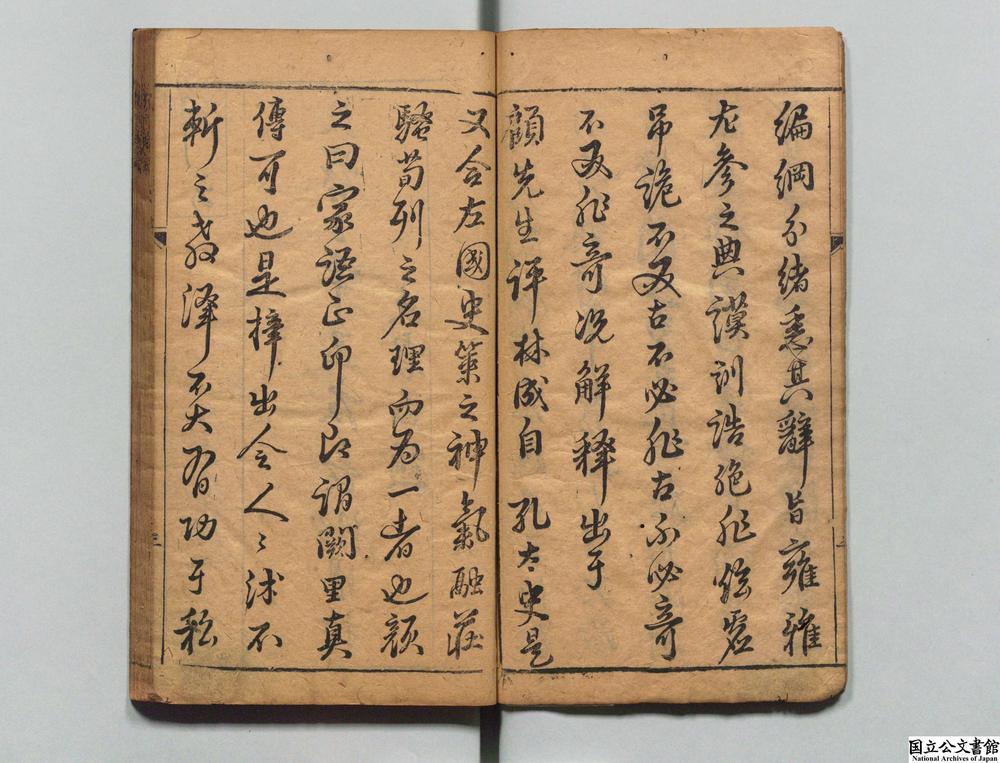 編綱分緒悉其辭旨雍雅
尤參之典謨訓誥絕非炫忽
吊詭不必古不必非古不必奇
不必非奇况解釋出于
顧先生評林成自 孔太史是
又合左國史策之神氣融莊
騷荀列之名理而為一者也顏
之曰家語正印即謂闕里真
傳可也是擇出令人〻沭不
斬之教澤不大有功于私
三
国立公文書館
National Archives of Japan